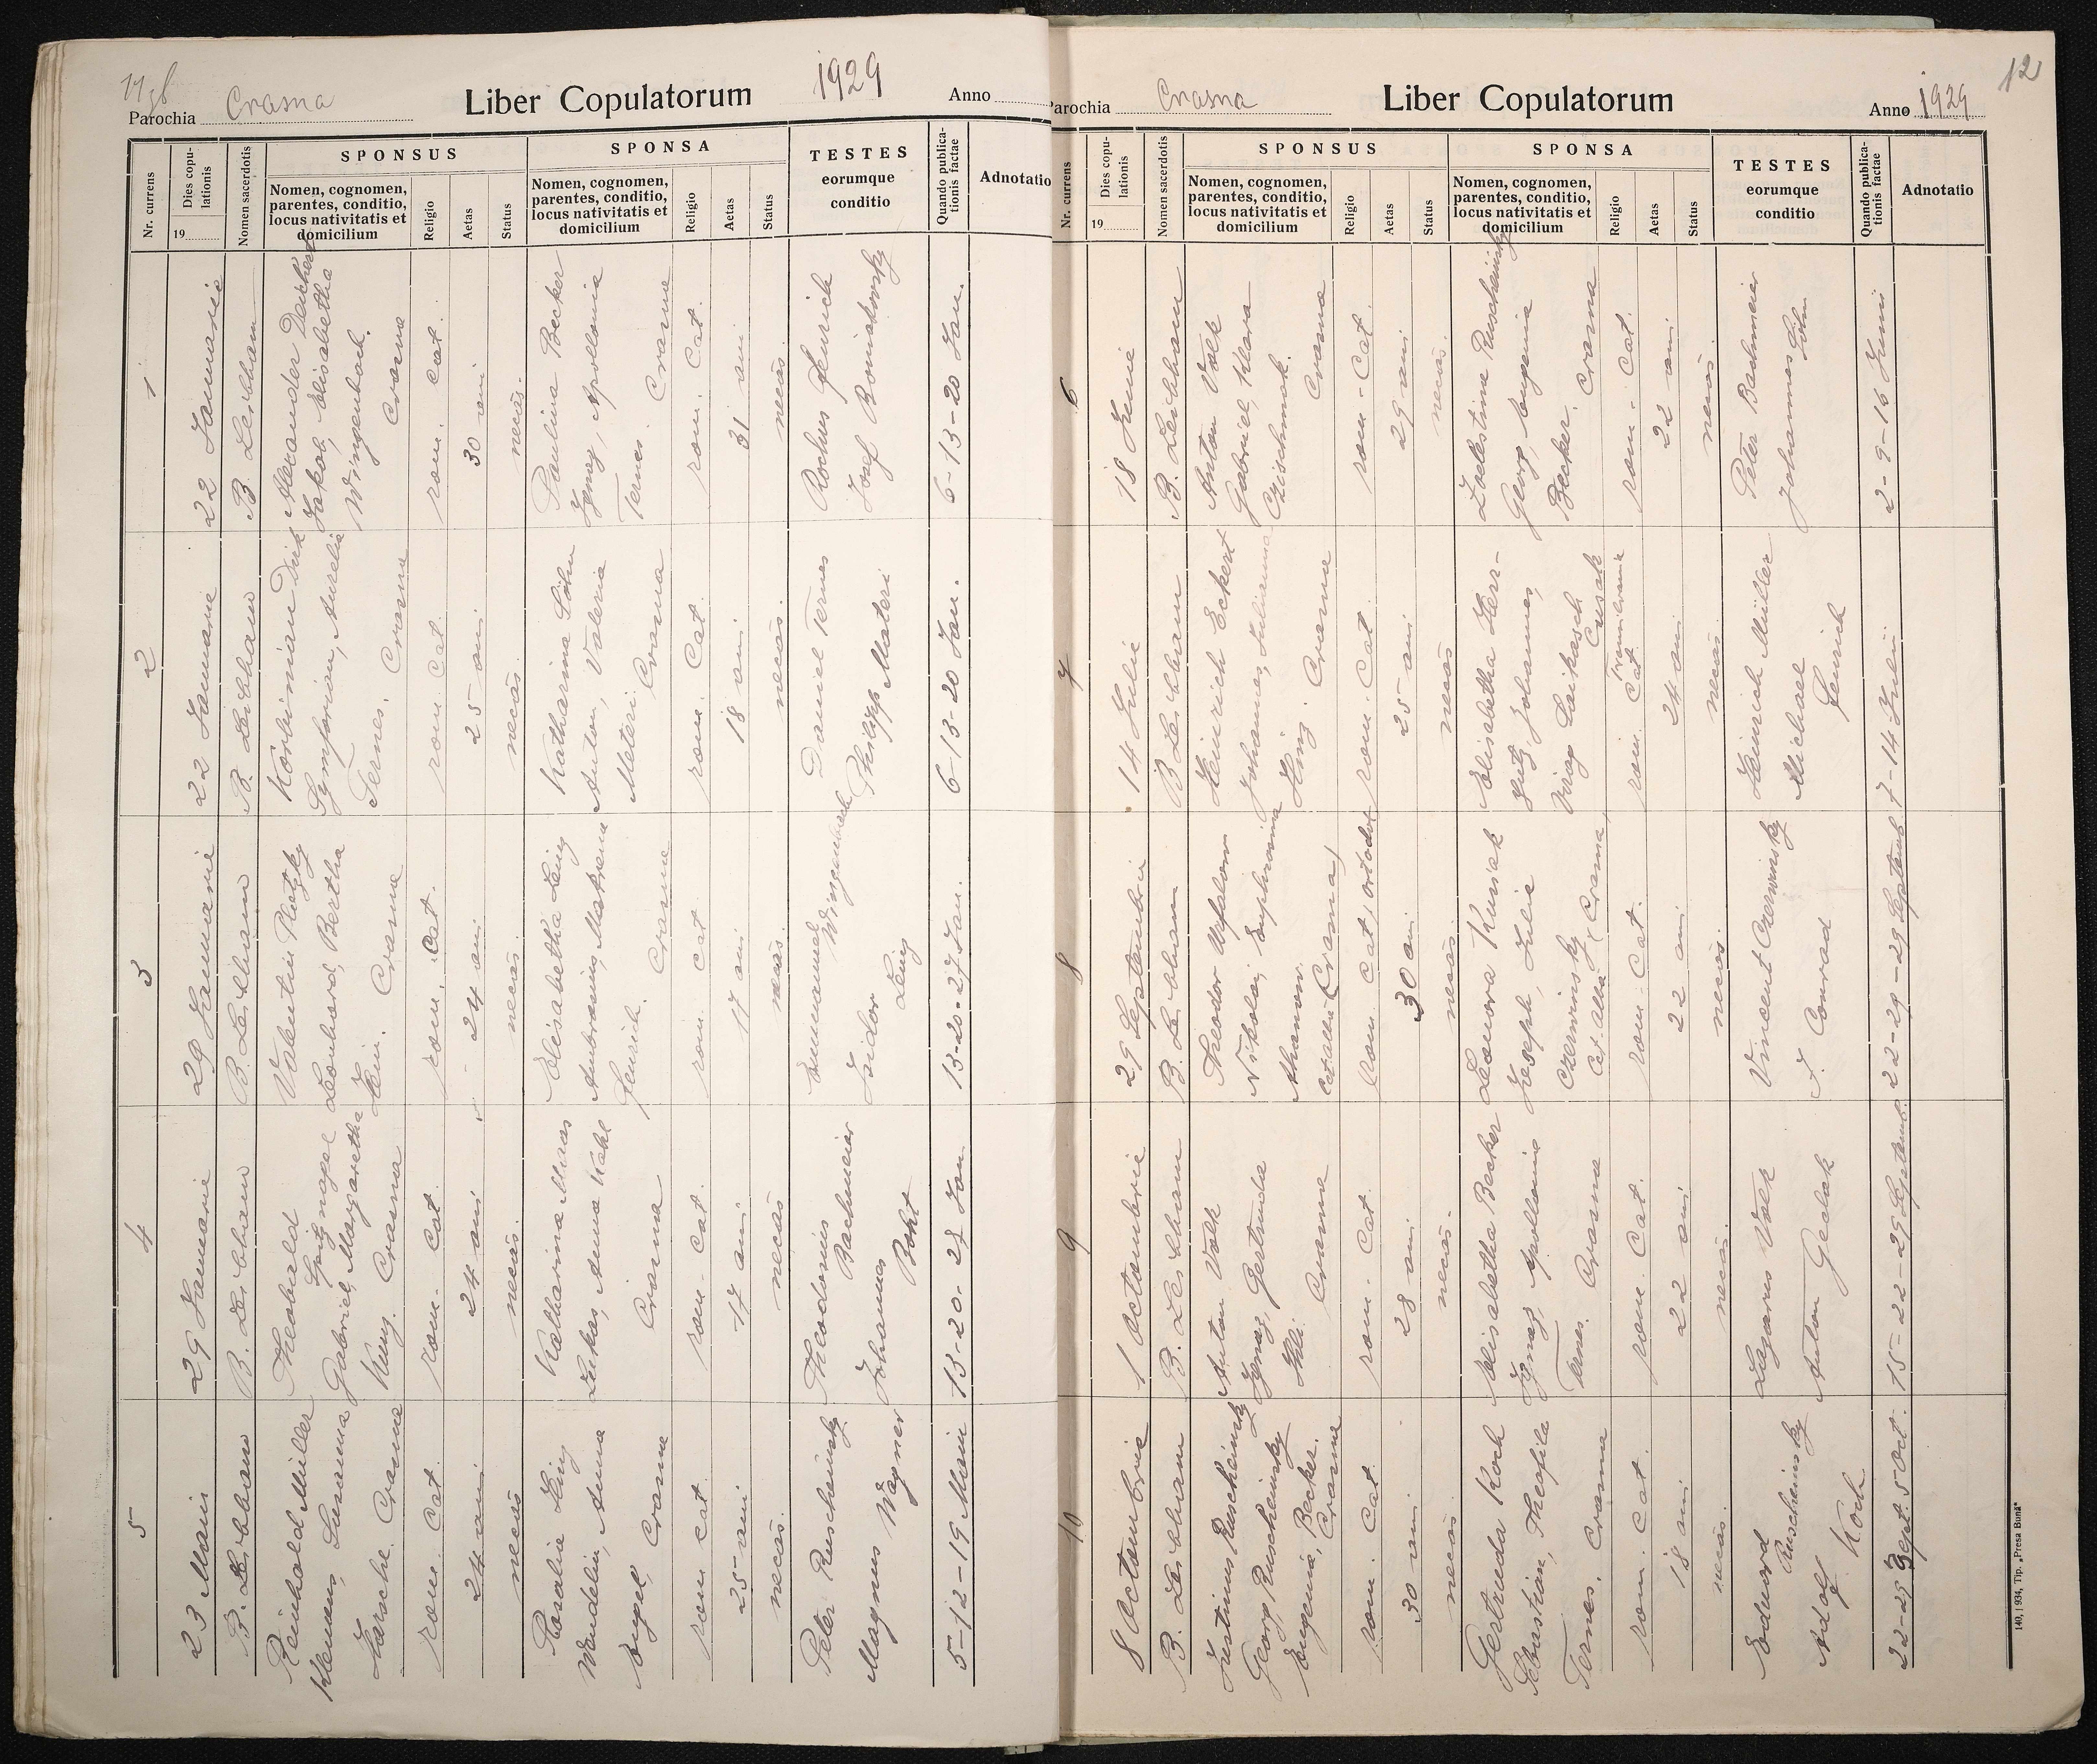 Parochia Crasna
Liber Copulatorum
1929
Anno
Nr. currens
Dies copu-
lationis
19
Nomen sacerdotis
SPONSUS
Nomen, cognomen,
parentes, conditio,
locus nativitatis et
domicilium
Religio
Aetas
Status
SPONSA
Nomen, cognomen,
parentes, conditio,
locus nativitatis et
domicilium
Religio
Aetas
Status
TESTES
eorumque
conditio
Quando publica-
tionis factae
Adnotatio
1
22 Januarie
B. Leibham
Alexander
Jakob, Elisabetha
Wingenbach.
Crasna
rom. cat.
30 ani
necăs.
Paulina Becker
Ignaz, Apollonia
Ternes.
Crasna
rom. Cat.
31 ani
necăs.
Rochus Jenrich
Josef Boniakowsky
6-13-20 Jan.
2
22 Januarie
B. Leibham
Korbinian Dirk
Symforian, Aurelia
Ternes.
Crasna
rom. Cat.
25 ani
necăs.
Katharina Söhn
Anton, Valeria
Materi.
Crasna
rom. Cat.
18 ani
necăs.
Daniel Ternes
Philipp Materi
6-13-20 Jan.
3
29 Januarie
B. Leibham
Valentin Plotzky
Leonhard, Bertha
Hein.
Crasna
rom. Cat.
24 ani
necăs.
Elisabetha Leinz
Ambrosius, Matrena
Jenrich.
Crasna
rom. cat
17 ani
necăs.
Emmanuel
Wingenbach
Isidor
Leinz
13-20-27 Jan.
4
29 Januarie
B. Leibham
Theobald
Spitznagel
Gabriel, Margaretha
Kunz. Crasna
rom. Cat.
24 ani
necăs.
Katharina Maas
Lukas, Anna Kahl
Crasna
rom. Cat.
17 ani
necăs
Theodorius
Bachmeier
Johannes
Boht
13-20-27 Jan
5
23 Maiu
B. Leibham
Reinhold Müller
Klemens, Susanna
Jarsche. Crasna
rom. Cat.
24 ani
necăs
Rosalia Leinz
Wendelin, Anna
Engel, Crasna
rom cat.
25 ani
necăs.
Peter Ruscheinsky
Magnus Wagner
5-12-19 Maiu
Parochia Crasna
Liber Copulatorum
Anno 1929
12
Nr. currens
Dies copu-
lationis
19
Nomen sacerdotis
SPONSUS
Nomen, cognomen,
parentes, conditio,
locus nativitatis et
domicilium
Religio
Aetas
Status
SPONSA
Nomen, cognomen,
parentes, conditio,
locus nativitatis et
domicilium
Religio
Aetas
Status
TESTES
eorumque
conditio
Quando publica-
tionis factae
Adnotatio
6
18 Iunie
B. Leibham
Anton Volk
Gabriel, Klara
Crasna
rom. Cat.
29 ani
necăs.
Zoelestina Ruscheinsky
Georg, Eugenia
Becker. Crasna
rom. Cat.
22 ani
necăs.
Peter Bachmeier
Johannes Söhn
2-9-16 Junii
7
14 Julie
B Leibham
Heinrich Eckert
Johannes, Julianna
Hinz. Crasna
rom. Cat.
25 ani
necăs
Elisabetha Herr-
Johannes,
rom. Cat.
24 ani
necăs.
Heinrich Müller
Michael
Jenrich
7-14 Julii
8
29 Septembrie
B. Leibham
Theodor
Nikolai, Euphrosina
Crasna)
rom. cat, ortodox
30 ani
necăs.
Leonora Kuniak
Joseph, Julia
Czerwinsky
Cet. Alba (Crasna)
rom. Cat.
22 ani
necăs.
Vincent Czerwinsky
J. Conrad
22-29-29 Septemb
9
1 Octombrie
B. Leibham
Anton Volk
Ignaz, Gertruda
Hili.
Crasna
rom. Cat.
28 ani
necăs.
Elisabetha Becker
Ignaz, Apollonia
Ternes. Crasna
rom. Cat.
22 ani
necăs.
Lazarus Volk
Anton Gedak
15-22-29 Septemb.
10
8 Octombrie
B. Leibham
Justinus Ruscheinsky
Georg Ruscheinsky
Eugenia, Becker.
Crasna
rom. Cat.
30 ani
necăs.
Gertruda Koch
Sebastian, Theofila
Ternes. Crasna
rom. Cat.
18 ani
necăs.
Eduard
Ruscheinsky
Adolf Koch
22-29 Sept. 5 Oct.
140, 1934, Tip. „Presa Bună"